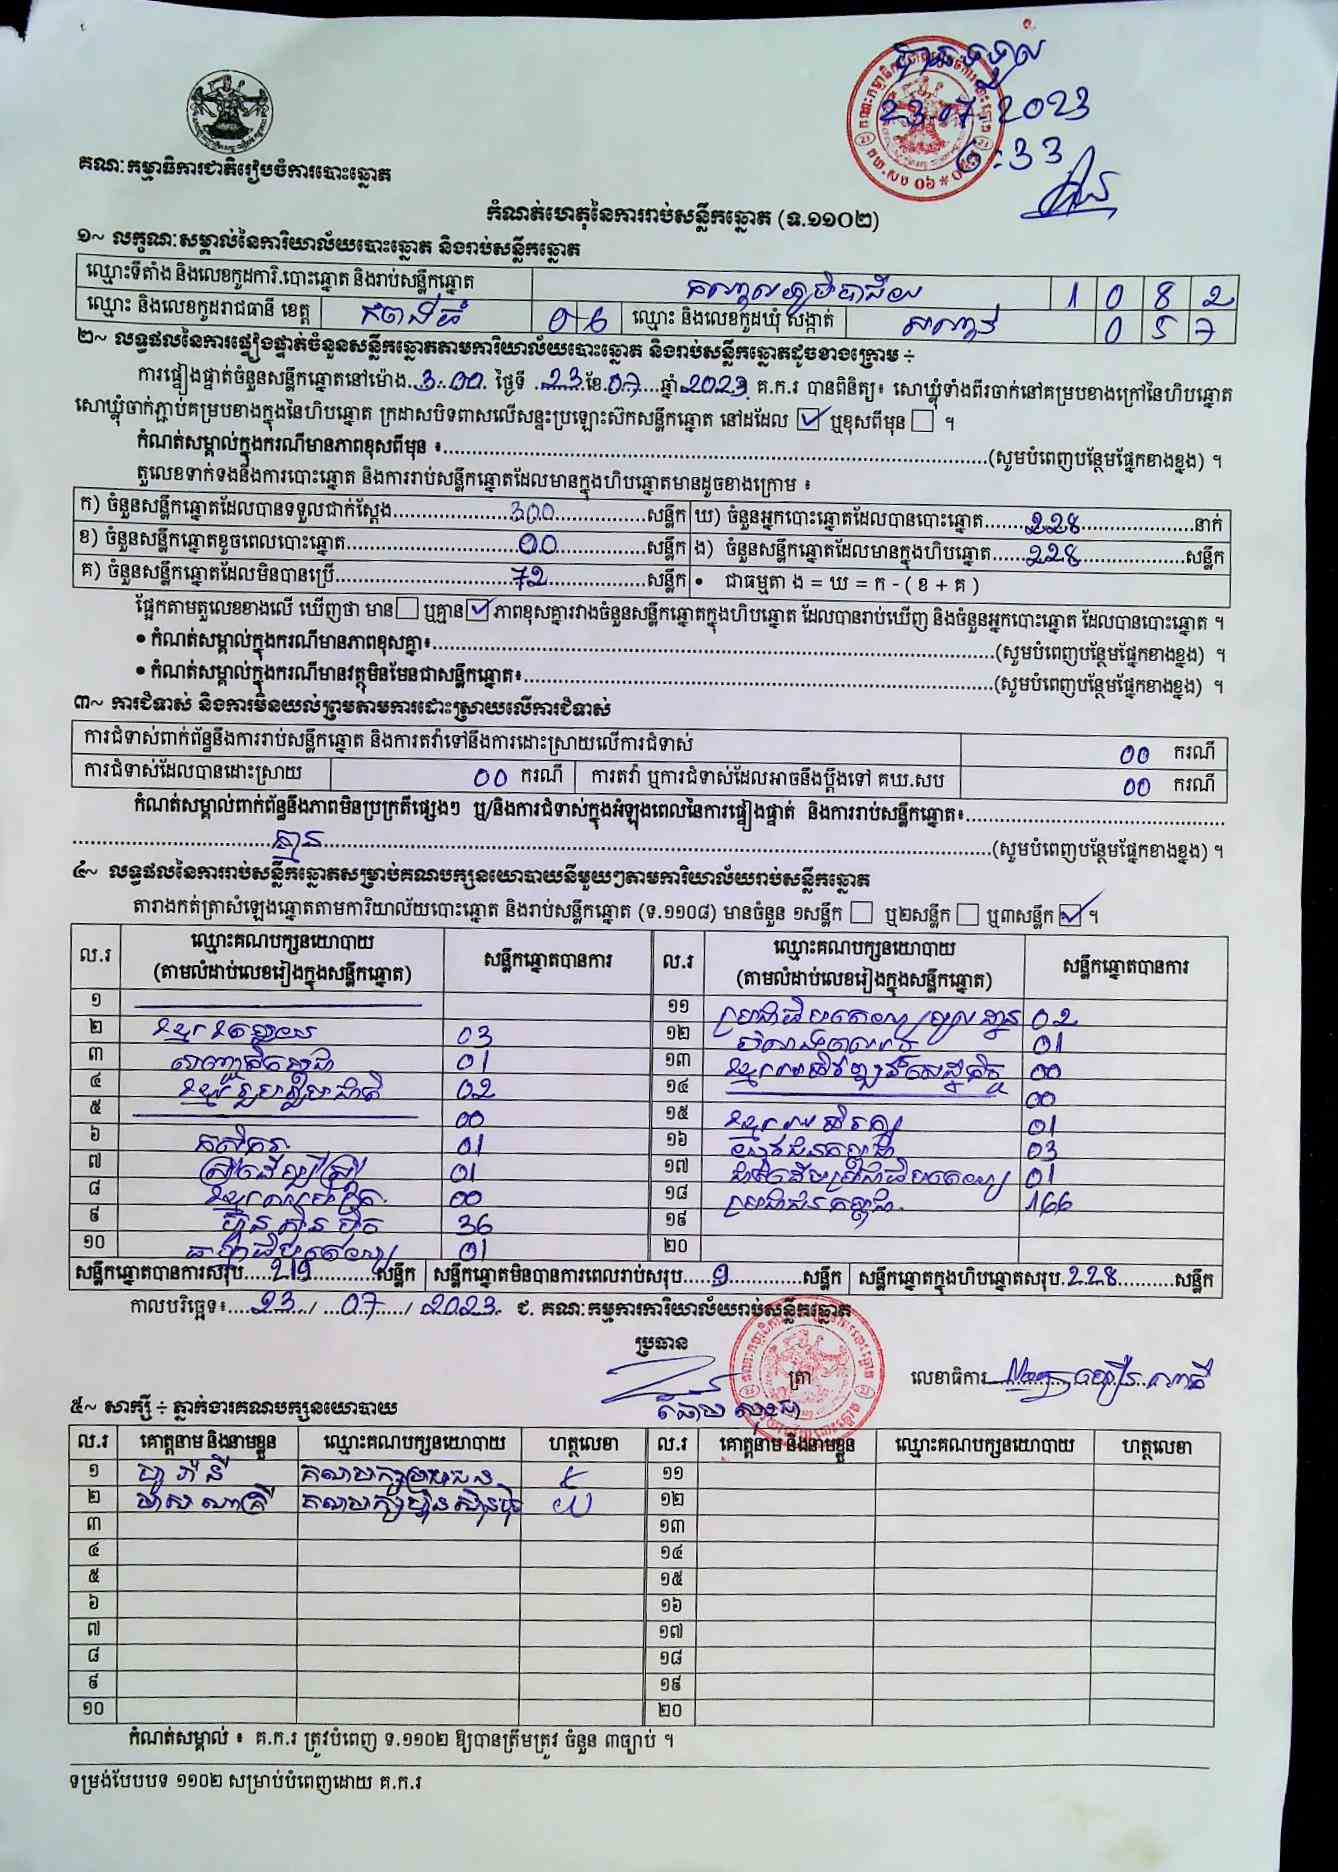 បានទទួល
23.07.2023
6:33
គណៈកម្មាធិការជាតិរៀបចំការបោះឆ្នោត
កំណត់ហេតុនៃការរាប់សន្លឹកឆ្នោត (ទ.១១០២)
១~ លក្ខណៈសម្គាល់នៃការិយាល័យបោះឆ្នោត និងរាប់សន្លឹកឆ្នោត
ឈ្មោះទីតាំង និងលេខកូដការិ.បោះឆ្នោត និងរាប់សន្លឹកឆ្នោត 1 0 8 2
ឈ្មោះ និងលេខកូដរាជធានី ខេត្ត កំពង់ធំ 0 6 ឈ្មោះ និងលេខកូដឃុំ សង្កាត់ 0 5 7
២~ លទ្ធផលនៃការផ្ទៀងផ្ទាត់ចំនួនសន្លឹកឆ្នោតតាមការិយាល័យបោះឆ្នោត និងរាប់សន្លឹកឆ្នោតដូចខាងក្រោម ÷
ការផ្ទៀងផ្ទាត់ចំនួនសន្លឹកឆ្នោតនៅម៉ោង 3:00 ថ្ងៃទី 23 ខែ 07 ឆ្នាំ 2023 គ.ក.រ បានពិនិត្យ៖ សោឃ្លុំទាំងពីរចាក់នៅគម្របខាងក្រៅនៃហិបឆ្នោត
សោឃ្លុំចាក់ភ្ជាប់គម្របខាងក្នុងនៃហិបឆ្នោត ក្រដាសបិទពាសលើសន្ទះប្រឡោះស៊កសន្លឹកឆ្នោត នៅដដែល ☑ ឬខុសពីមុន ☐ ។
កំណត់សម្គាល់ក្នុងករណីមានភាពខុសពីមុន ៖ (សូមបំពេញបន្ថែមផ្នែកខាងខ្នង) ។
តួលេខទាក់ទងនឹងការបោះឆ្នោត និងការរាប់សន្លឹកឆ្នោតដែលមានក្នុងហិបឆ្នោតមានដូចខាងក្រោម ៖
ក) ចំនួនសន្លឹកឆ្នោតដែលបានទទួលជាក់ស្តែង 300 សន្លឹក ឃ) ចំនួនអ្នកបោះឆ្នោតដែលបានបោះឆ្នោត 228 នាក់
ខ) ចំនួនសន្លឹកឆ្នោតខូចពេលបោះឆ្នោត 00 សន្លឹក ង) ចំនួនសន្លឹកឆ្នោតដែលមានក្នុងហិបឆ្នោត 228 សន្លឹក
គ) ចំនួនសន្លឹកឆ្នោតដែលមិនបានប្រើ 72 សន្លឹក • ជាធម្មតា ង = ឃ = ក - ( ខ + គ )
ផ្អែកតាមតួលេខខាងលើ ឃើញថា មាន ☐ ឬគ្មាន ☑ ភាពខុសគ្នារវាងចំនួនសន្លឹកឆ្នោតក្នុងហិបឆ្នោត ដែលបានរាប់ឃើញ និងចំនួនអ្នកបោះឆ្នោត ដែលបានបោះឆ្នោត ។
• កំណត់សម្គាល់ក្នុងករណីមានភាពខុសគ្នា៖ (សូមបំពេញបន្ថែមផ្នែកខាងខ្នង) ។
• កំណត់សម្គាល់ក្នុងករណីមានវត្ថុមិនមែនជាសន្លឹកឆ្នោត៖ (សូមបំពេញបន្ថែមផ្នែកខាងខ្នង) ។
៣~ ការជំទាស់ និងការមិនយល់ព្រមតាមការដោះស្រាយលើការជំទាស់
ការជំទាស់ពាក់ព័ន្ធនឹងការរាប់សន្លឹកឆ្នោត និងការតវ៉ាទៅនឹងការដោះស្រាយលើការជំទាស់ 00 ករណី
ការជំទាស់ដែលបានដោះស្រាយ 00 ករណី ការតវ៉ា ឬការជំទាស់ដែលអាចនឹងប្តឹងទៅ គឃ.សប 00 ករណី
កំណត់សម្គាល់ពាក់ព័ន្ធនឹងភាពមិនប្រក្រតីផ្សេងៗ ឬ/និងការជំទាស់ក្នុងអំឡុងពេលនៃការផ្ទៀងផ្ទាត់ និងការរាប់សន្លឹកឆ្នោត៖
គ្មាន (សូមបំពេញបន្ថែមផ្នែកខាងខ្នង) ។
៤~ លទ្ធផលនៃការរាប់សន្លឹកឆ្នោតសម្រាប់គណបក្សនយោបាយនីមួយៗតាមការិយាល័យរាប់សន្លឹកឆ្នោត
តារាងកត់ត្រាសំឡេងឆ្នោតតាមការិយាល័យបោះឆ្នោត និងរាប់សន្លឹកឆ្នោត (ទ.១១០៨) មានចំនួន ១សន្លឹក ☐ ឬ២សន្លឹក ☐ ឬ៣សន្លឹក ☑ ។
ល.រ ឈ្មោះគណបក្សនយោបាយ (តាមលំដាប់លេខរៀងក្នុងសន្លឹកឆ្នោត) សន្លឹកឆ្នោតបានការ ល.រ ឈ្មោះគណបក្សនយោបាយ (តាមលំដាប់លេខរៀងក្នុងសន្លឹកឆ្នោត) សន្លឹកឆ្នោតបានការ
១ ១១ ប្រជាធិបតេយ្យមូលដ្ឋាន 02
២ ខ្មែរតែមួយ 03 ១២ 01
៣ 01 ១៣ ខ្មែរអភិវឌ្ឍន៍សេដ្ឋកិច្ច 00
៤ ខ្មែររួបរួមជាតិ 02 ១៤ 00
៥ 00 ១៥ ខ្មែរអភិរក្ស 01
៦ កសិករ 01 ១៦ 03
៧ ស្ត្រីដើម្បីស្ត្រី 01 ១៧ 01
៨ 00 ១៨ ប្រជាជនកម្ពុជា 166
៩ ហ៊្វុនស៊ិនប៉ិច 36 ១៩
១០ ធម្មាធិបតេយ្យ 01 ២០
សន្លឹកឆ្នោតបានការសរុប 219 សន្លឹក សន្លឹកឆ្នោតមិនបានការពេលរាប់សរុប 9 សន្លឹក សន្លឹកឆ្នោតក្នុងហិបឆ្នោតសរុប 228 សន្លឹក
កាលបរិច្ឆេទ៖ 23 / 07 / 2023 ជ. គណៈកម្មការការិយាល័យរាប់សន្លឹកឆ្នោត
ប្រធាន
ត្រា
លេខាធិការ
៥~ សាក្សី ÷ ភ្នាក់ងារគណបក្សនយោបាយ
ល.រ គោត្តនាម និងនាមខ្លួន ឈ្មោះគណបក្សនយោបាយ ហត្ថលេខា ល.រ គោត្តនាម និងនាមខ្លួន ឈ្មោះគណបក្សនយោបាយ ហត្ថលេខា
១ គណបក្សប្រជាជន ១១
២ គណបក្សហ៊្វុនស៊ិនប៉ិច ១២
៣ ១៣
៤ ១៤
៥ ១៥
៦ ១៦
៧ ១៧
៨ ១៨
៩ ១៩
១០ ២០
កំណត់សម្គាល់ ៖ គ.ក.រ ត្រូវបំពេញ ទ.១១០២ ឱ្យបានត្រឹមត្រូវ ចំនួន ៣ច្បាប់ ។
ទម្រង់បែបបទ ១១០២ សម្រាប់បំពេញដោយ គ.ក.រ